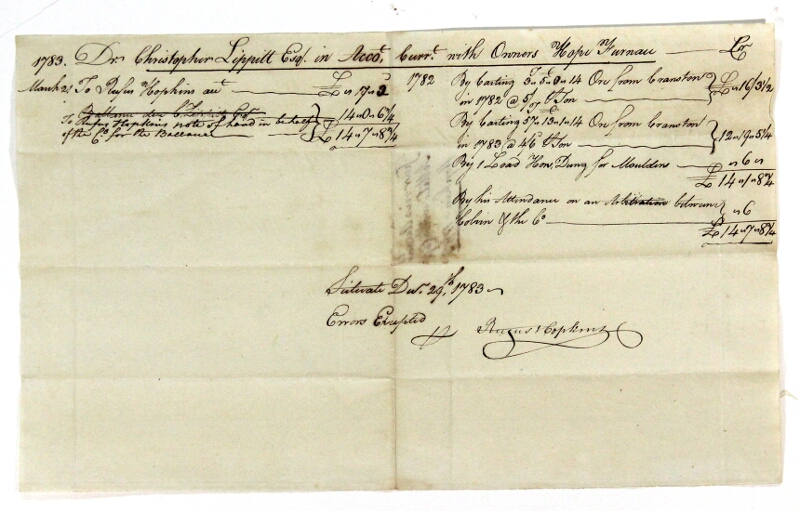 1783. Dr. Christopher Lippitt Esqr. in Accot. Currt. with Owners Hope Furnace Cr
March 21 To Rufus Hopkins act £ " 7 " 2
Ballance due C. Lippitt Esqr
To Rufus Hopkins note of hand in behalf 14 " 0 " 6 3/4
of the Co for the Ballance £ 14 " 7 " 8 3/4
1782 By Carting 3 " 5 " 0 " 14 Ore from Cranston
in 1782 @ 5/ ⅌ Ton £ " 16/3 1/2
By Carting 57 " 13 " 1 " 14 Ore from Cranston
in 1783 @ 4/6 ⅌ Ton 12 " 19 " 5 1/4
By 1 Load Hors, Dung for Moulders " 6 "
£ 14 " 1 " 8 3/4
By his Attendance on an Arbitration between
Colvin & the Co " 6
£ 14 " 7 " 8 3/4
Scituate Decr. 29th. 1783
Errors Excepted
Rufus Hopkins